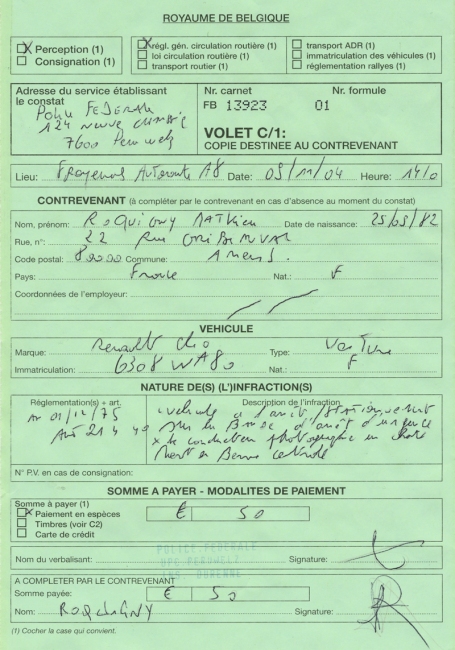 ROYAUME DE BELGIQUE
Perception (1)
Consignation (1)
régl. gén. circulation routière (1)
loi circulation routière (1)
transport routier (1)
transport ADR (1)
immatriculation des véhicules (1)
réglementation rallyes (1)
Adresse du service établissant
le constat
7600
Nr. carnet Nr. formule
FB 13923 01
VOLET C/1:
COPIE DESTINEE AU CONTREVENANT
Lieu: Autoroute A8 Date: 05/11/04 Heure:
CONTREVENANT (à compléter par le contrevenant en cas d'absence au moment du constat)
Nom, prénom: Date de naissance: 25/05/82
Rue, n°: 22 Rue
Code postal: 80000 Commune: Amiens
Pays: France Nat.: F
Coordonnées de l'employeur:
VEHICULE
Marque: Renault Clio Type: Voiture
Immatriculation: 6308 WA80 Nat.: F
NATURE DE(S) (L')INFRACTION(S)
Réglementation(s) + art. Description de l'infraction
AR 01/12/75
véhicule à l'arrêt
sur la bande d'arrêt d'urgence
N° P.V. en cas de consignation:
SOMME A PAYER - MODALITES DE PAIEMENT
Somme à payer (1)
Paiement en espèces
Timbres (voir C2)
Carte de crédit
€ 50
POLICE FEDERALE
Nom du verbalisant: Signature:
A COMPLETER PAR LE CONTREVENANT
Somme payée: € 50
Nom: Signature:
(1) Cocher la case qui convient.